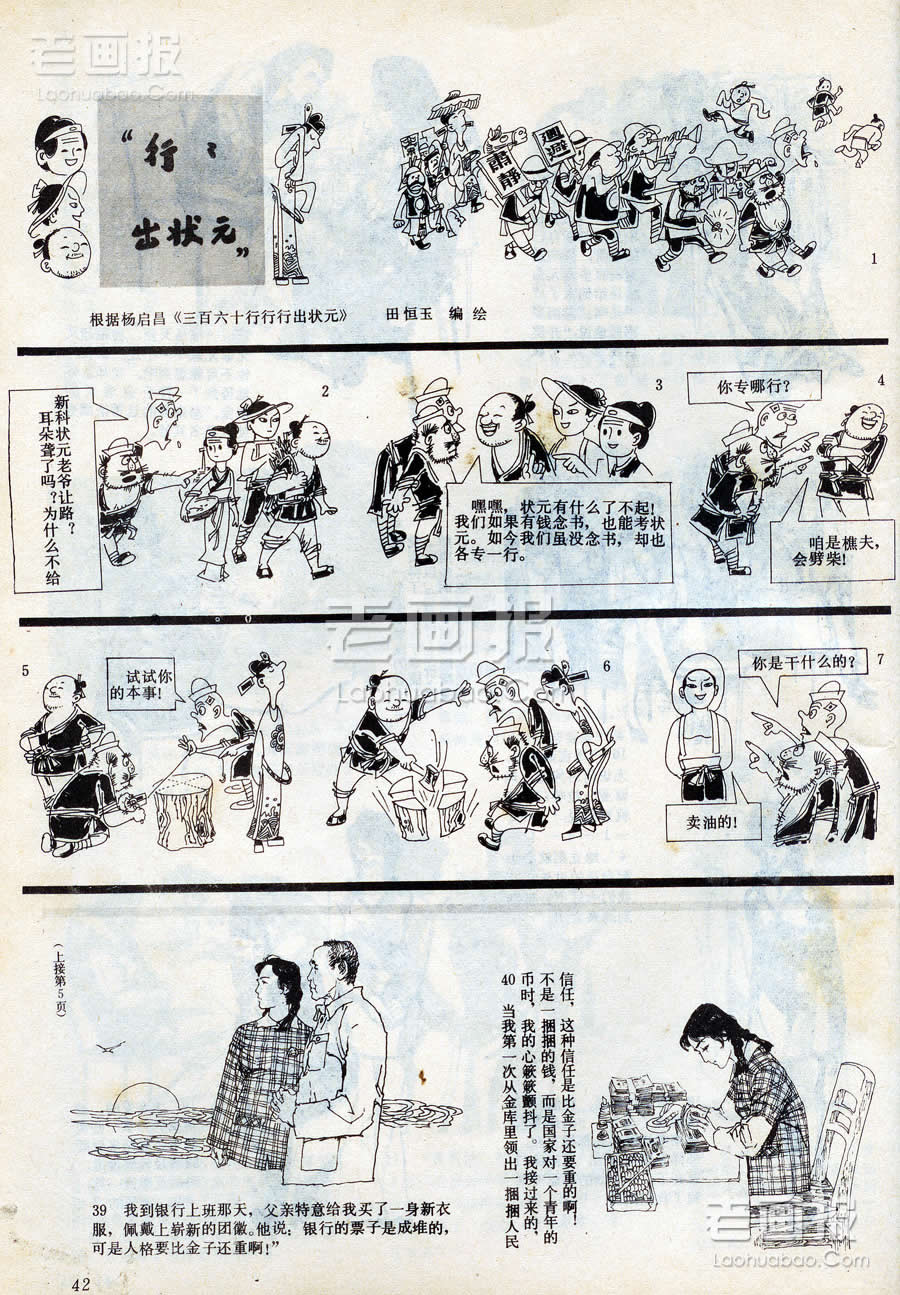 老画报
Laohuabao.Com
“行行
出状元”
肃静
迴避
1
根据杨启昌《三百六十行行行出状元》 田恒玉 编绘
新科状元老爷让路？
耳朵聋了吗？为什么不给
2
3
嘿嘿，状元有什么了不起！
我们如果有钱念书，也能考状
元。如今我们虽没念书，却也
各专一行。
你专哪行？
4
咱是樵夫，
会劈柴！
老画报
Laohuabao.Com
5
试试你
的本事！
6
你是干什么的？
7
卖油的！
（上接第5页）
39 我到银行上班那天，父亲特意给我买了一身新衣
服，佩戴上崭新的团徽。他说：银行的票子是成堆的，
可是人格要比金子还重啊！”
40 当我第一次从金库里领出一捆捆人民
币时，我的心簌簌颤抖了。我接过来的，
不是一捆捆的钱，而是国家对一个青年的
信任，这种信任是比金子还要重的啊！
老画报
Laohuabao.Com
42